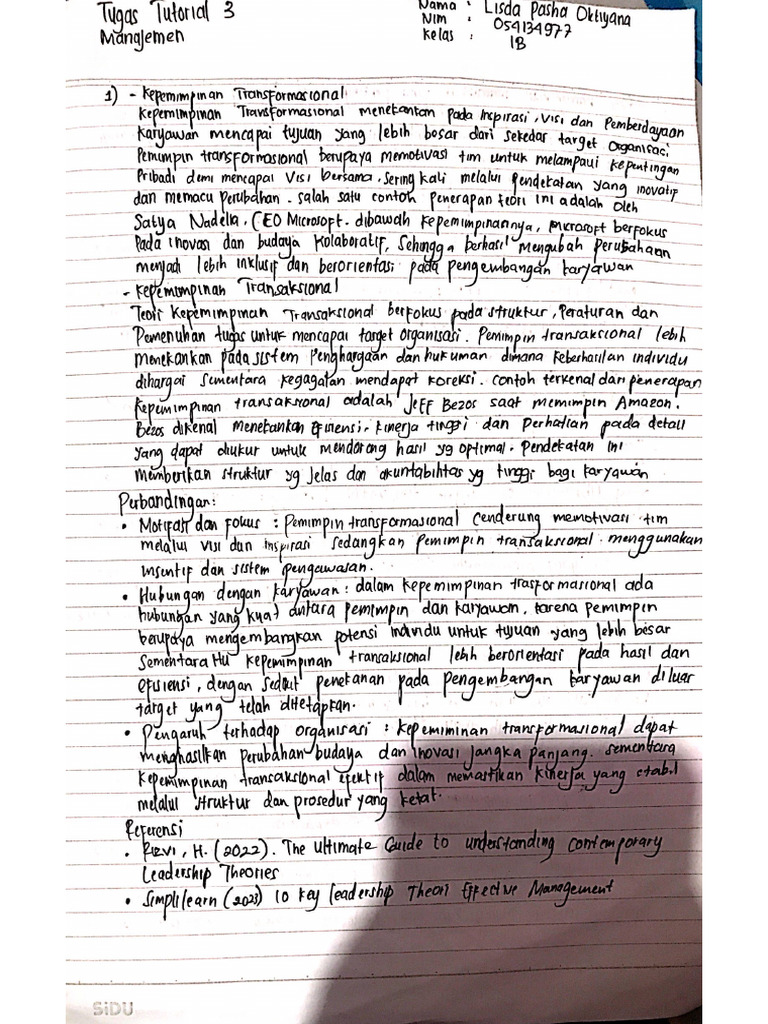 Tugas Tutorial 3
Manajemen
Nama : Lisda Pasha Oktiyana
Nim : 054134977
Kelas : 1B
1) - Kepemimpinan Transformasional
Kepemimpinan Transformasional menekankan pada Inspirasi, Visi dan Pemberdayaan
Karyawan mencapai tujuan yang lebih besar dari sekedar target Organisasi
Pemimpin transformasional berupaya memotivasi tim untuk melampaui kepentingan
Pribadi demi mencapai Visi bersama. Sering kali melalui pendekatan yang inovatif
dan memacu Perubahan. Salah satu contoh penerapan teori ini adalah oleh
Satya Nadella, CEO Microsoft. dibawah kepemimpinannya, microsoft berfokus
Pada inovasi dan budaya kolaboratif, Sehingga berhasil mengubah perusahaan
menjadi lebih inklusif dan berorientasi pada pengembangan karyawan
- Kepemimpinan Transaksional
Teori Kepemimpinan Transaksional berfokus pada struktur, Peraturan dan
Pemenuhan tugas untuk mencapai target organisasi. Pemimpin transaksional lebih
menekankan pada sistem Penghargaan dan hukuman dimana Keberhasilan individu
dihargai Sementara kegagalan mendapat koreksi. contoh terkenal dari penerapan
Kepemimpinan transaksional adalah Jeff Bezos saat memimpin Amazon.
Bezos dikenal menekankan Efisiensi, Kinerja tinggi dan Perhatian pada detail
yang dapat diukur untuk mendorong hasil yg optimal. Pendekatan ini
memberikan struktur yg Jelas dan akuntabilitas yg tinggi bagi karyawan
Perbandingan:
• Motifasi dan Fokus : Pemimpin transformasional Cenderung memotivasi tim
melalui visi dan Inspirasi sedangkan pemimpin transaksional menggunakan
insentif dan sistem pengawasan.
• Hubungan dengan karyawan : dalam kepemimpinan trasformasional ada
hubungan yang kuat antara pemimpin dan karyawan, karena pemimpin
berupaya mengembangkan potensi individu untuk tujuan yang lebih besar
Sementara itu kepemimpinan transaksional lebih berorientasi pada hasil dan
efisiensi, dengan sedikit penekanan pada pengembangan karyawan diluar
target yang telah ditetapkan.
• Pengaruh terhadap organisasi : Kepemiminan transformasional dapat
menghasilkan perubahan budaya dan inovasi jangka panjang. sementara
kepemimpinan transaksional efektif dalam memastikan kinerja yang stabil
melalui struktur dan prosedur yang ketat.
Referensi
• Rizvi, H. (2022). The Ultimate Guide to understanding contemporary
Leadership Theories
• Simplilearn (2023) 10 key leadership Theori Effective Management
SiDU